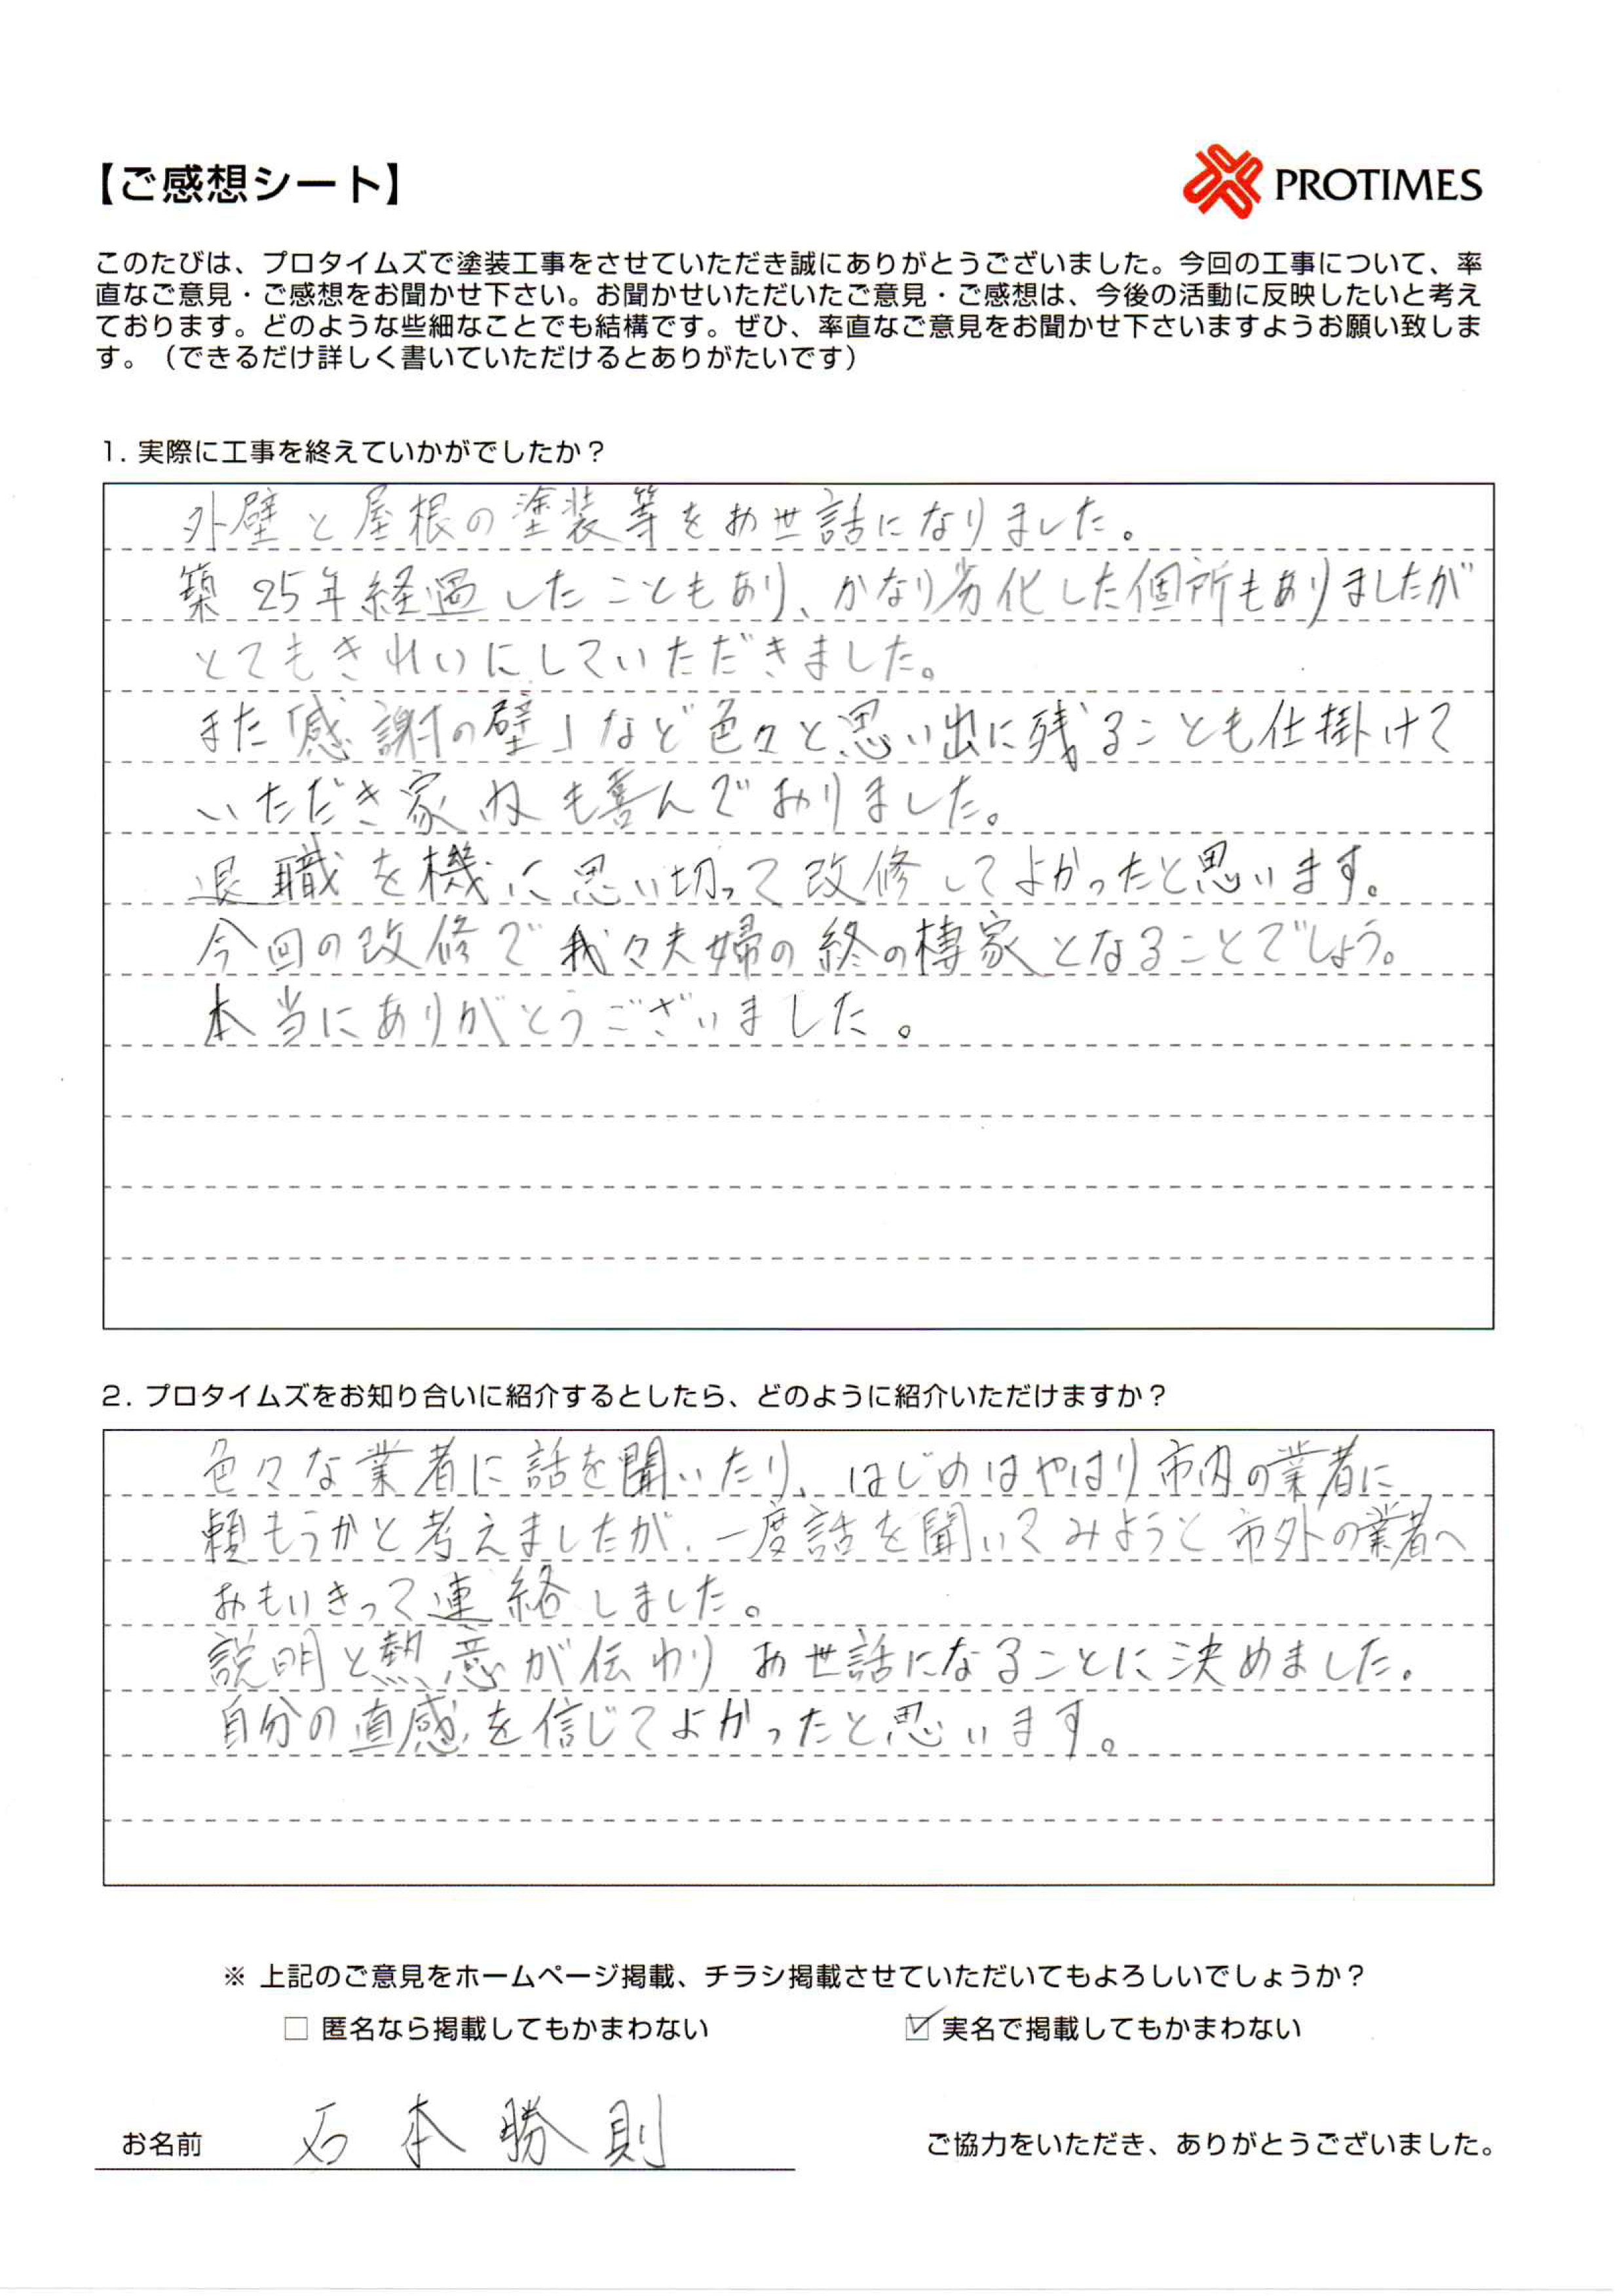 【ご感想シート】
PROTIMES
このたびは、プロタイムズで塗装工事をさせていただき誠にありがとうございました。今回の工事について、率
直なご意見・ご感想をお聞かせ下さい。お聞かせいただいたご意見・ご感想は、今後の活動に反映したいと考え
ております。どのような些細なことでも結構です。ぜひ、率直なご意見をお聞かせ下さいますようお願い致しま
す。（できるだけ詳しく書いていただけるとありがたいです）
1. 実際に工事を終えていかがでしたか？
外壁と屋根の塗装等をお世話になりました。
築25年経過したこともあり、かなり劣化した個所もありましたが
とてもきれいにしていただきました。
また「感謝の壁」など色々と思い出に残ることも仕掛けて
いただき家内も喜んでおりました。
退職を機に思い切って改修してよかったと思います。
今回の改修で我々夫婦の終の棲家となることでしょう。
本当にありがとうございました。
2. プロタイムズをお知り合いに紹介するとしたら、どのように紹介いただけますか？
色々な業者に話を聞いたり、はじめはやはり市内の業者に
頼もうかと考えましたが、一度話を聞いてみようと市外の業者へ
おもいきって連絡しました。
説明と熱意が伝わりお世話になることに決めました。
自分の直感を信じてよかったと思います。
※ 上記のご意見をホームページ掲載、チラシ掲載させていただいてもよろしいでしょうか？
□ 匿名なら掲載してもかまわない ☑ 実名で掲載してもかまわない
お名前 石本勝則 ご協力をいただき、ありがとうございました。